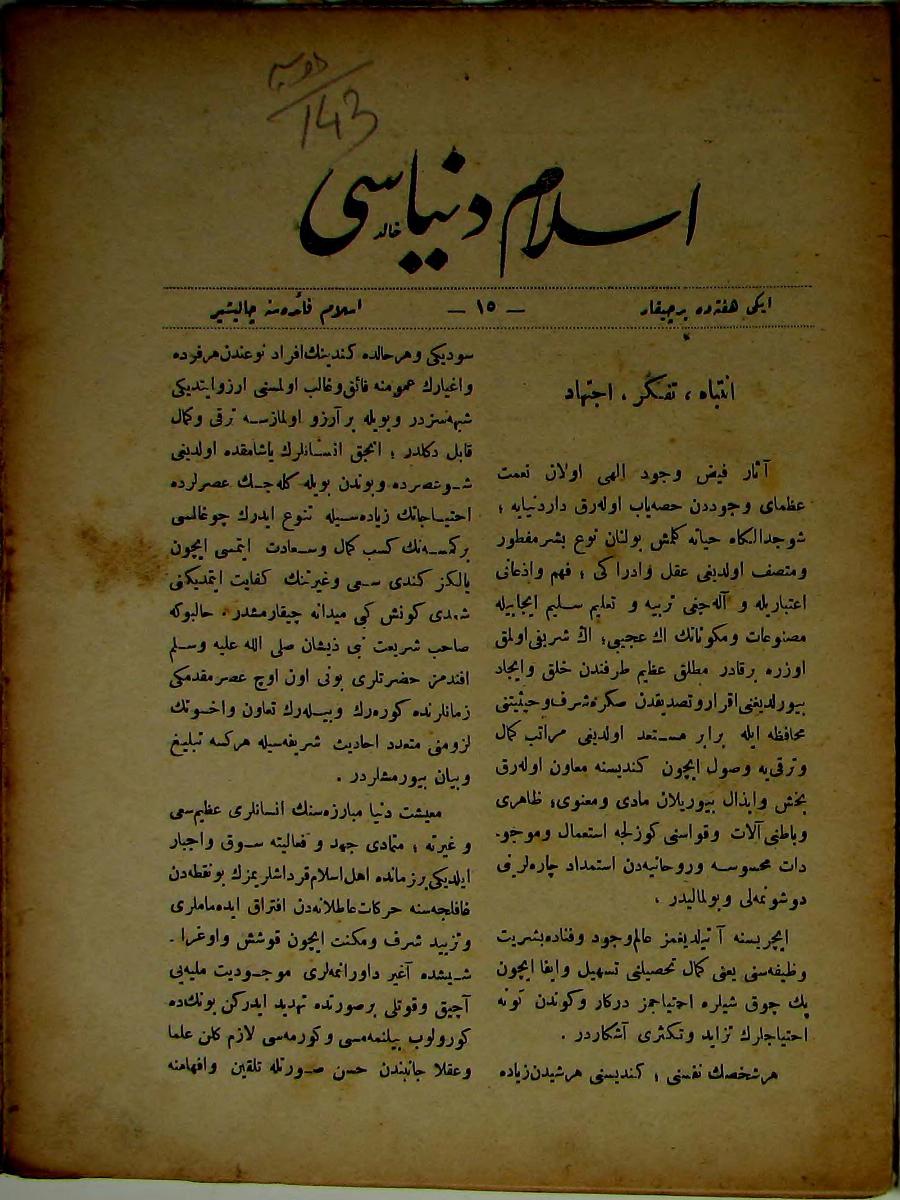 143
اسلام دنیاسی
خالد
ایکی هفته‌ده بر چیقار
— ۱٥ —
اسلام فائده‌سنه چالیشیر
انتباه ، تفکر ، اجتهاد
آثار فیض وجود الهی اولان نعمت
عظمای وجوددن حصه‌یاب اوله‌رق داردنیایه ؛
شوجدالکاه حیاته کلمش بولنان نوع بشر مفطور
ومتصف اولدیغی عقل وادراکی ؛ فهم واذعانی
اعتباریله و آله‌جغی تربیه و تعلیم سلیم ایجابیله
مصنوعات ومکوناتك اك عجیبی؛ اك شریفی اولمق
اوزره برقادر مطلق عظیم طرفندن خلق وایجاد
بیورلدیغنی اقرار وتصدیقدن صکره شرف وحیثیتنی
محافظه ایله برابر مستعد اولدیغی مراتب کمال
وترقی‌یه وصول ایچون کندیسنه معاون اوله‌رق
بخش وابذال بیوریلان مادی ومعنوی؛ ظاهری
وباطنی آلات وقواسنی کوزلجه استعمال وموجو-
دات محسوسه وروحانیه‌دن استمداد چاره‌لرینی
دوشونمه‌لی وبولمالیدر .
ایچریسنه آتیلدیغمز عالم وجود وفناده بشریت
وظیفه‌سنی یعنی کمال تحصیلنی تسهیل وایفا ایچون
پك چوق شیلره احتیاجمز درکار وکوندن کونه
احتیاجلرك تزاید وتکثری آشکاردر .
هرشخصك نفسنی ؛ کندیسنی هرشیدن زیاده
سودیکی وهرحالده کندینك افراد نوعندن هرفرده
واغیارك عمومنه فائق وغالب اولمسنی ارزو ایتدیکی
شبهه‌سزدر وبویله بر آرزو اولمازسه ترقی وکمال
قابل دکلدر ؛ انجق انسانلرك یاشامقده اولدیغی
شوعصرده وبوندن بویله کله‌جك عصرلرده
احتیاجاتك زیاده‌سیله تنوع ایدرك چوغالمسی
برکمسه‌نك کسب کمال وسعادت ایتمسی ایچون
یالکز کندی سعی وغیرتنك کفایت ایتمدیکنی
شمدی کونش کی میدانه چیقارمشدر . حالبوکه
صاحب شریعت نبی ذیشان صلی الله علیه وسلم
افندمز حضرتلری بونی اون اوچ عصر مقدمکی
زمانلرنده کوره‌رك وبیله‌رك تعاون واخوتك
لزومنی متعدد احادیث شریفه‌سیله هرکسه تبلیغ
وبیان بیورمشلردر .
معیشت دنیا مبارزه‌سنك انسانلری عظیم سعی
و غیرته ؛ متمادی جهد و فعالیته سوق واجبار
ایلدیکی برزمانده اهل اسلام قرداشلریمزك بونقطه‌دن
غافلجه‌سنه حرکات عاطلانه‌دن افتراق ایده‌ماملری
وتزیید شرف ومکنت ایچون قوشش واوغرا -
شیشده آغیر داورانمه‌لری موجودیت ملیه‌یی
آچیق وقوتلی برصورتده تهدید ایدرکن بونك‌ده
کورولوب بیلنمه‌مسی وکورمه‌سی لازم کلن علما
وعقلا جانبندن حسن صورتله تلقین وافهامنه